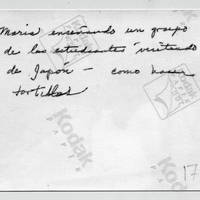 Maria ensenando un groupo
de los estudiantes visitando
de Japón — como hacer
tortillas
Kodak
PAPER
Kodak
17